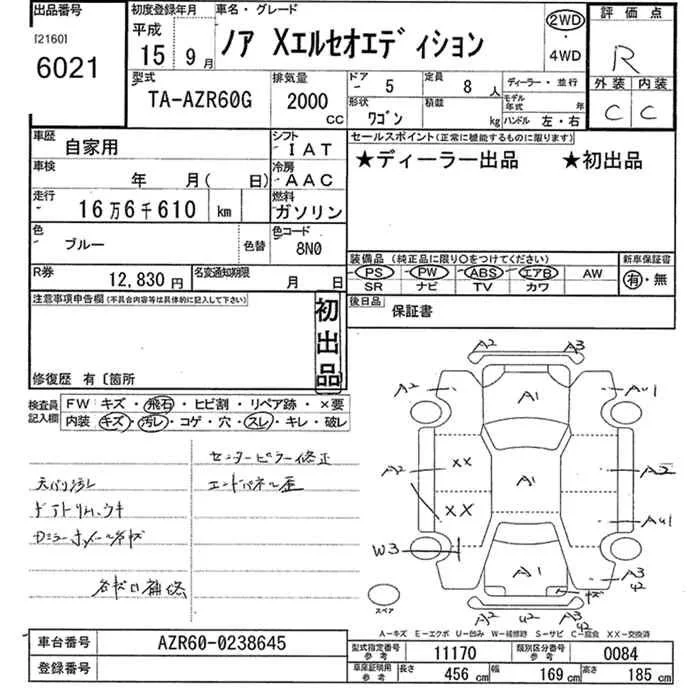 出品番号 初度登録年月 車名・グレード 評価点
[2160] 平成 ノア Xエルセオエディション 2WD
6021 15 9月 ・ R
4WD
型式 排気量 ドア 5 定員 8人 ディーラー・並行 外装 内装
TA-AZR60G 2000cc 形状 ワゴン 積載 kg モデル年式 年 C C
ハンドル 左・右
車歴 自家用 シフト IAT セールスポイント(正常に機能するものに限ります)
車検 年 月( 日) 冷房 AAC ★ディーラー出品 ★初出品
走行 16万6千610 km 燃料 ガソリン
色 ブルー 色替 色コード 8N0
装備品(純正品に限り○をつけてください) 新車保証書
R券 12,830円 名変通知期限 月 日 PS PW ABS エアB AW 有・無
SR ナビ TV カワ
注意事項申告欄(不具合内容等は具体的に記入して下さい) 初出品 後日品 保証書
修復歴 有〔箇所
検査員記入欄 FW キズ・飛石・ヒビ割・リペア跡・×要
内装 キズ・汚レ・コゲ・穴・スレ・キレ・破レ
センターピラー修正
天バリ汚レ エンドパネル歪
A2 A3
A2 A1 AU1
A2 XX A1 A2
XX AU1
W3 A1 キズ A3
U2
スペア A2 U2 A3
U2
A-キズ E-エクボ U-凹み W-補修跡 S-サビ C-腐食 XX-交換済
車台番号 AZR60-0238645 型式指定番号 参考 11170 類別区分番号 参考 0084
登録番号 車庫証明用 参考 長さ 456cm 幅 169cm 高さ 185cm